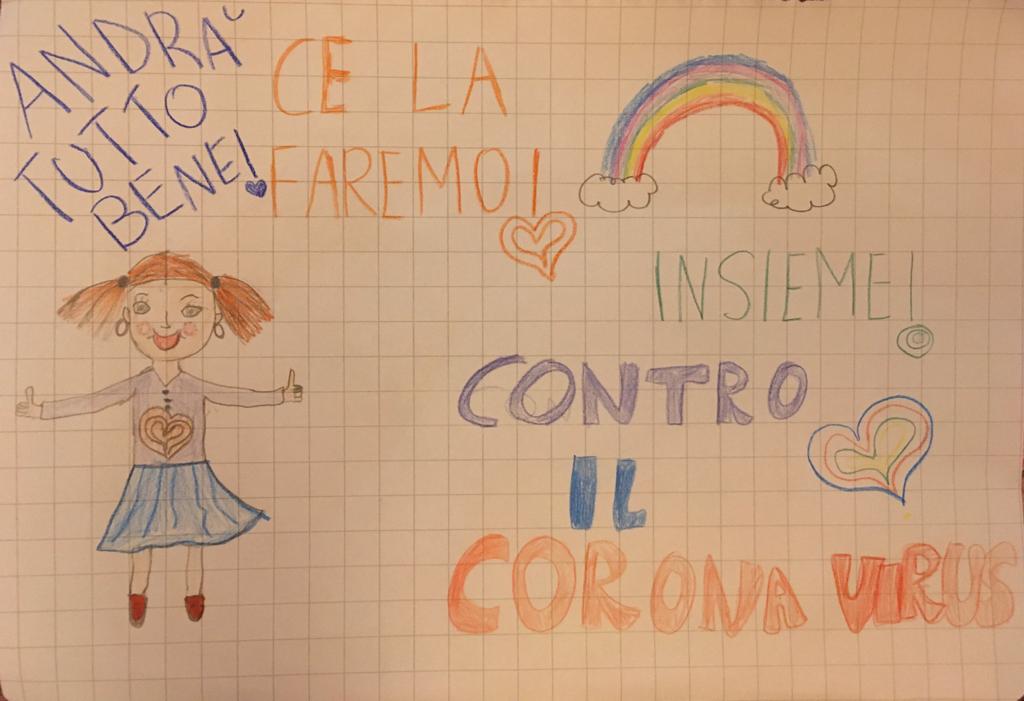 ANDRÀ
TUTTO
BENE!
CE LA
FAREMO!
INSIEME!
CONTRO
IL
CORONA VIRUS